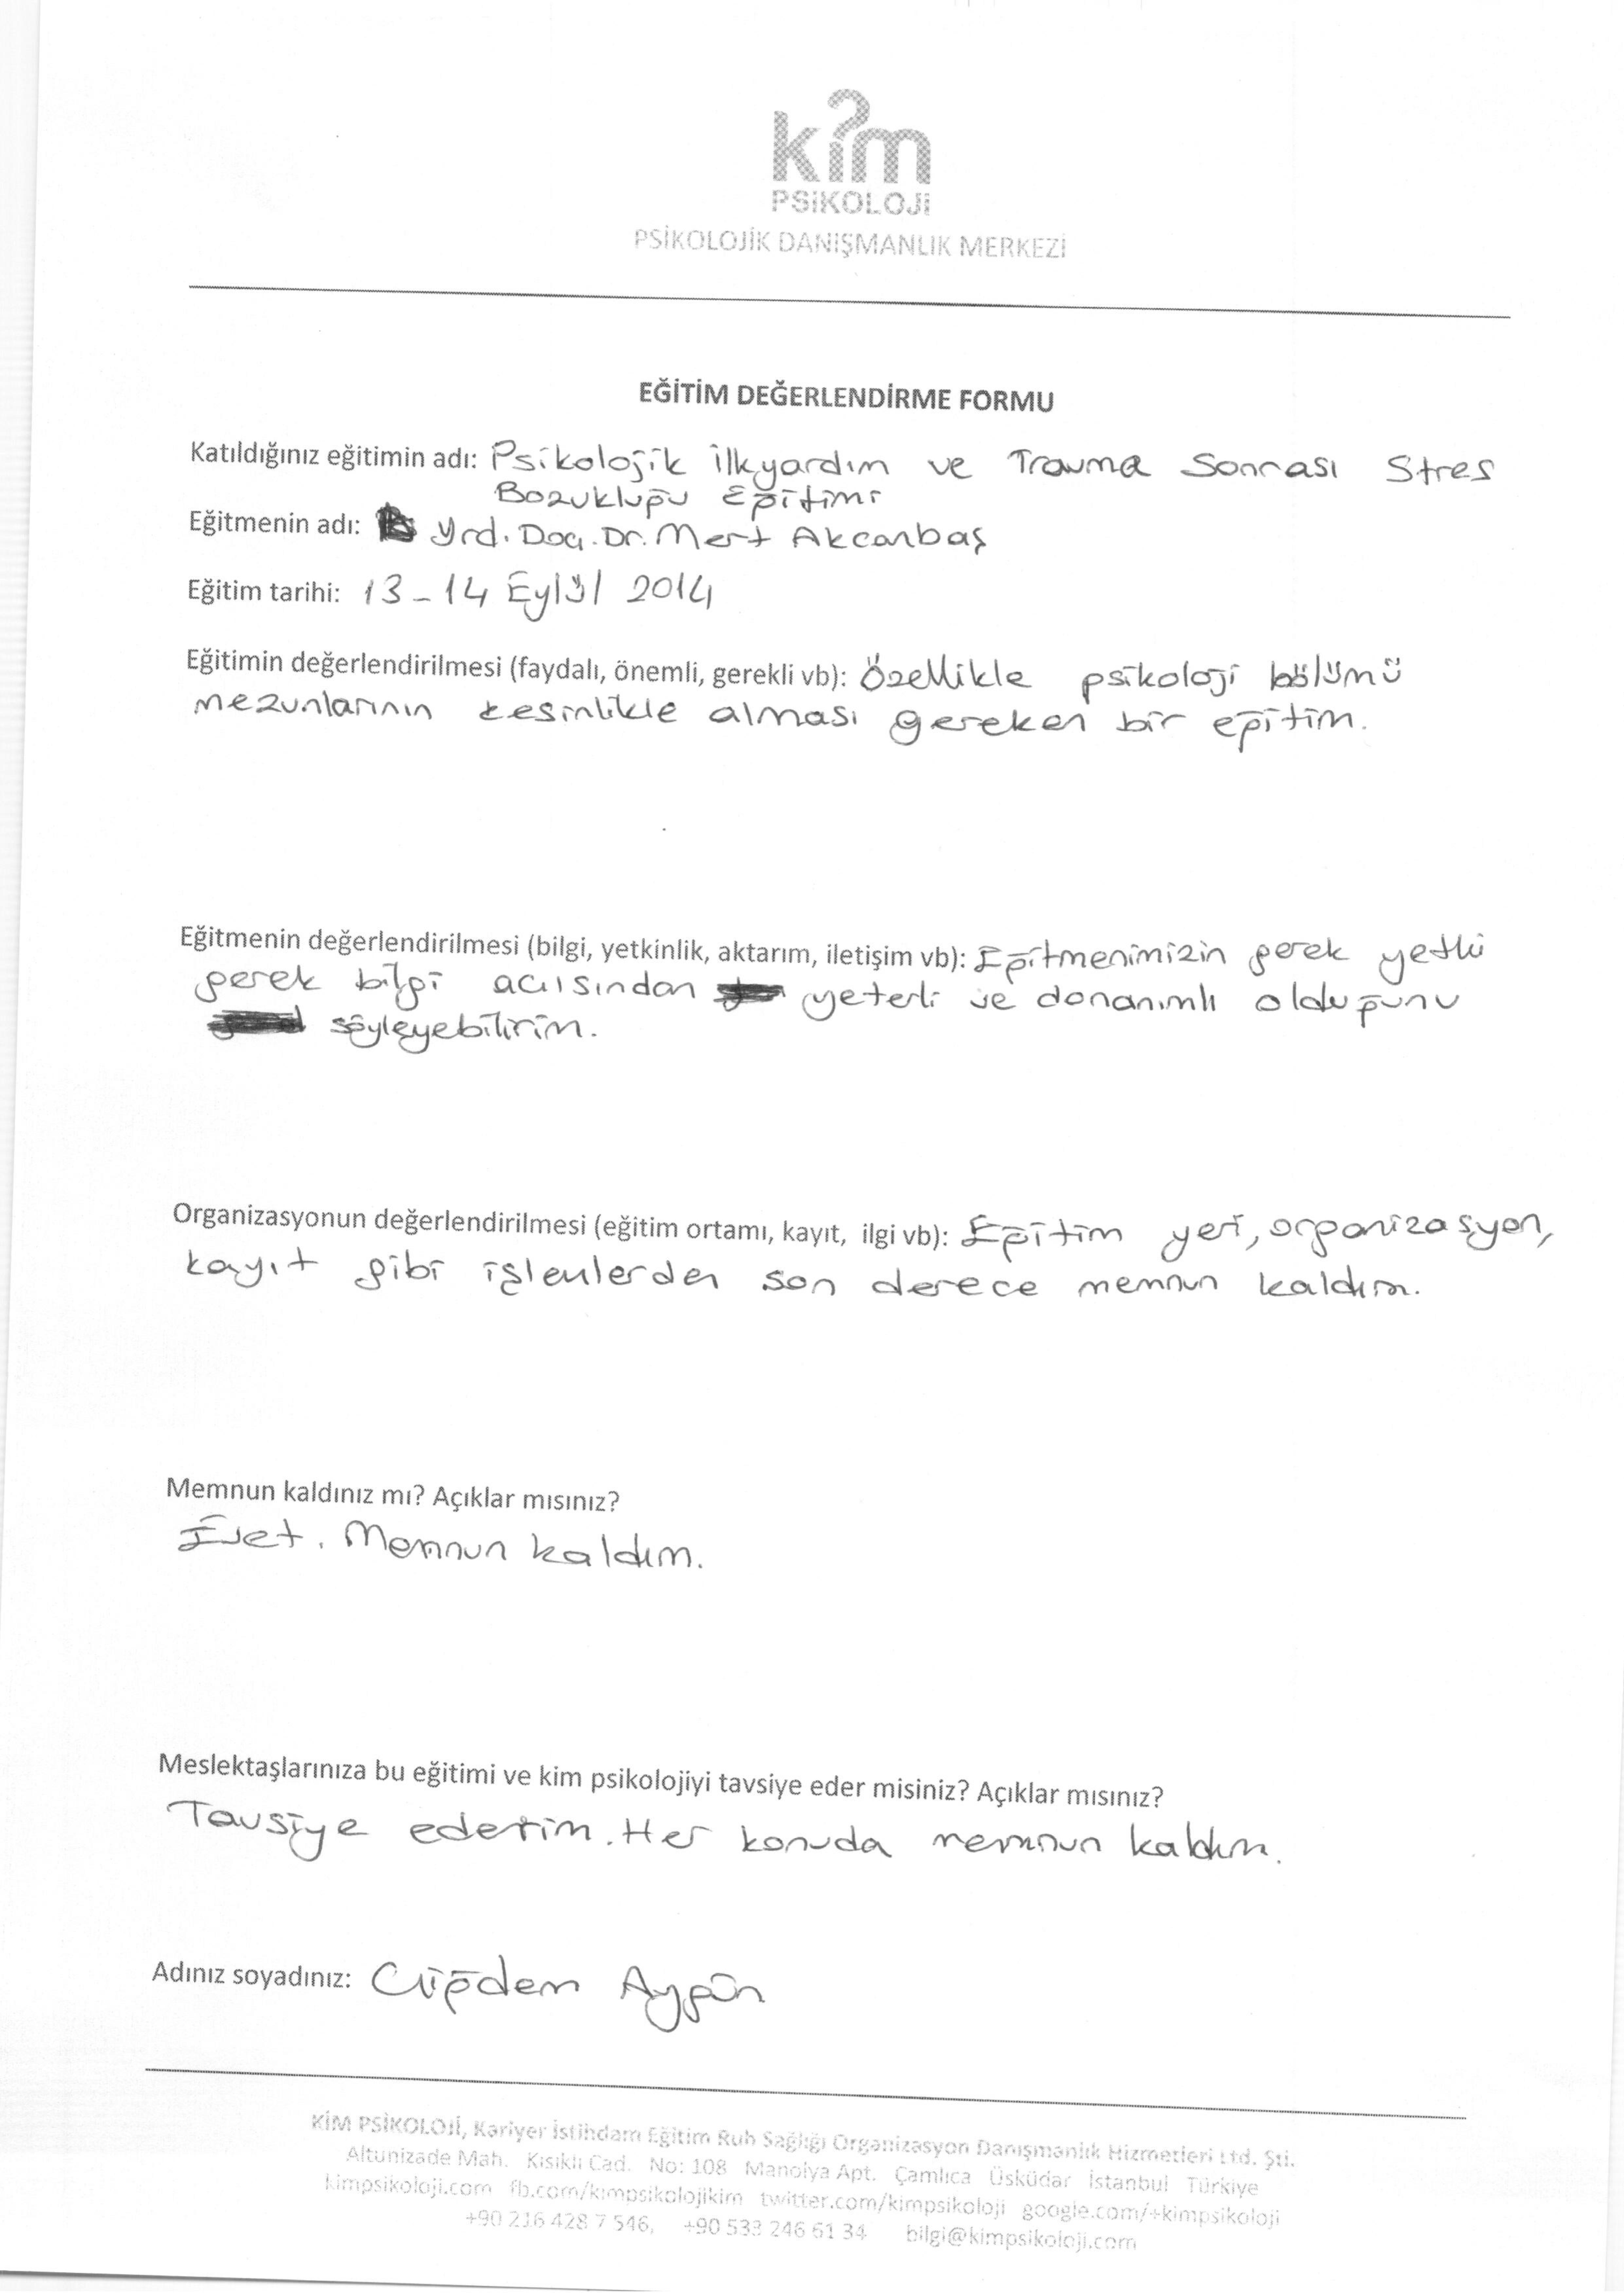 kim
PSİKOLOJİ
PSİKOLOJİK DANIŞMANLIK MERKEZİ
EĞİTİM DEĞERLENDİRME FORMU
Katıldığınız eğitimin adı: Psikolojik İlkyardım ve Travma Sonrası Stres
Bozukluğu Eğitimi
Eğitmenin adı: Yrd. Doç. Dr. Mert Akcanbaş
Eğitim tarihi: 13-14 Eylül 2014
Eğitimin değerlendirilmesi (faydalı, önemli, gerekli vb): Özellikle psikoloji bölümü
mezunlarının kesinlikle alması gereken bir eğitim.
Eğitmenin değerlendirilmesi (bilgi, yetkinlik, aktarım, iletişim vb): Eğitmenimizin gerek yetki
gerek bilgi açısından yeterli ve donanımlı olduğunu
söyleyebilirim.
Organizasyonun değerlendirilmesi (eğitim ortamı, kayıt, ilgi vb): Eğitim yeri, organizasyon,
kayıt gibi işlemlerden son derece memnun kaldım.
Memnun kaldınız mı? Açıklar mısınız?
Evet. Memnun kaldım.
Meslektaşlarınıza bu eğitimi ve kim psikolojiyi tavsiye eder misiniz? Açıklar mısınız?
Tavsiye ederim. Her konuda memnun kaldım.
Adınız soyadınız: Çiğdem Aygün
KİM PSİKOLOJİ, Kariyer İstihdam Eğitim Ruh Sağlığı Organizasyon Danışmanlık Hizmetleri Ltd. Şti.
Altunizade Mah. Kısıklı Cad. No: 108 Manolya Apt. Çamlıca Üsküdar İstanbul Türkiye
kimpsikoloji.com fb.com/kimpsikolojikim twitter.com/kimpsikoloji google.com/+kimpsikoloji
+90 216 428 7 546, +90 533 246 61 34 bilgi@kimpsikoloji.com